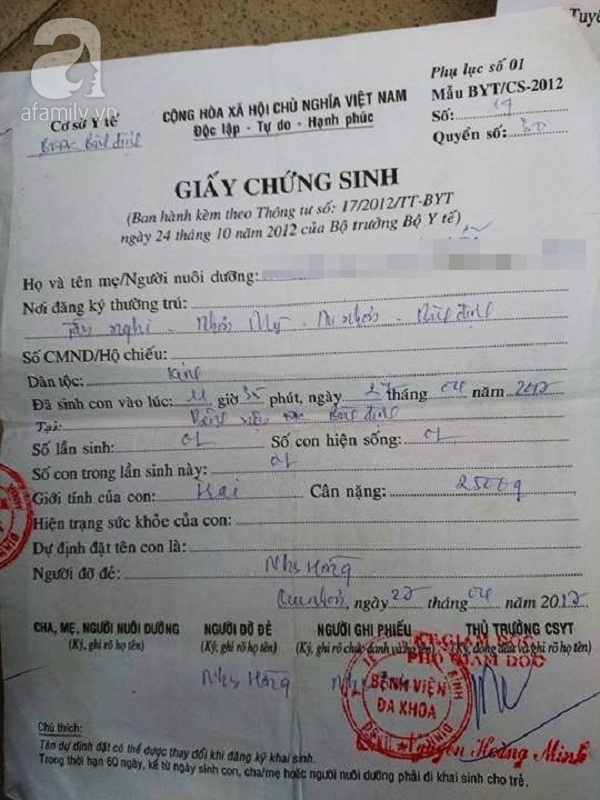 Tuyê
a
afamily.vn
Phụ lục số 01
CỘNG HÒA XÃ HỘI CHỦ NGHĨA VIỆT NAM
Mẫu BYT/CS-2012
Cơ sở Y tế
Độc lập - Tự do - Hạnh phúc
Số: 19
Bình Định
Quyển số: 30
GIẤY CHỨNG SINH
(Ban hành kèm theo Thông tư số: 17/2012/TT-BYT
ngày 24 tháng 10 năm 2012 của Bộ trưởng Bộ Y tế)
Họ và tên mẹ/Người nuôi dưỡng:
Nơi đăng ký thường trú:
Nhơn Mỹ - An Nhơn - Bình Định
Số CMND/Hộ chiếu:
Dân tộc: Kinh
Đã sinh con vào lúc: 11 giờ 35 phút, ngày 27 tháng 04 năm 2017
Tại: Bình Định
Số lần sinh: 01 Số con hiện sống: 01
Số con trong lần sinh này: 01
Giới tính của con: Trai Cân nặng: 2500g
Hiện trạng sức khỏe của con:
Dự định đặt tên con là:
Người đỡ đẻ: Như Hồng
Quy Nhơn, ngày 27 tháng 04 năm 2017
CHA, MẸ, NGƯỜI NUÔI DƯỠNG NGƯỜI ĐỠ ĐẺ NGƯỜI GHI PHIẾU THỦ TRƯỞNG CSYT
(Ký, ghi rõ họ tên) (Ký, ghi rõ họ tên) (Ký, ghi rõ chức danh và họ tên) (Ký, đóng dấu và ghi rõ họ tên)
KT.GIÁM ĐỐC
PHÓ GIÁM ĐỐC
Như Hồng
BỆNH VIỆN
ĐA KHOA
Nguyễn Hoàng Minh
Chú thích:
Tên dự định đặt có thể được thay đổi khi đăng ký khai sinh.
Trong thời hạn 60 ngày, kể từ ngày sinh con, cha/mẹ hoặc người nuôi dưỡng phải đi khai sinh cho trẻ.